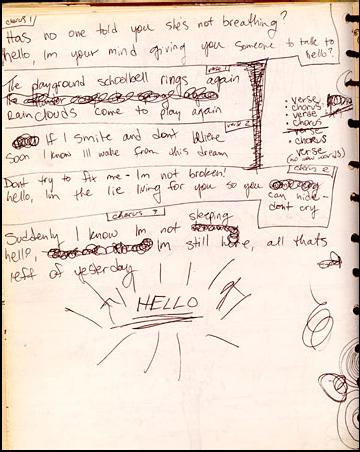 chorus 1
Has no one told you she's not breathing?
hello, Im your mind giving you someone to talk to
hello?
verse 1
The playground schoolbell rings again
The
rainclouds come to play again
verse 2
If I smile and dont believe
Soon I know Ill wake from this dream
Dont try to fix me - Im not broken!
hello, Im the lie living for you so you
can hide -
dont cry
chorus 2
chorus 3
Suddenly I know Im not sleeping
hello, Im still here, all thats
left of yesterday
HELLO
• verse
• chorus
• verse
• chorus
verse
• chorus
verse
(no new words)